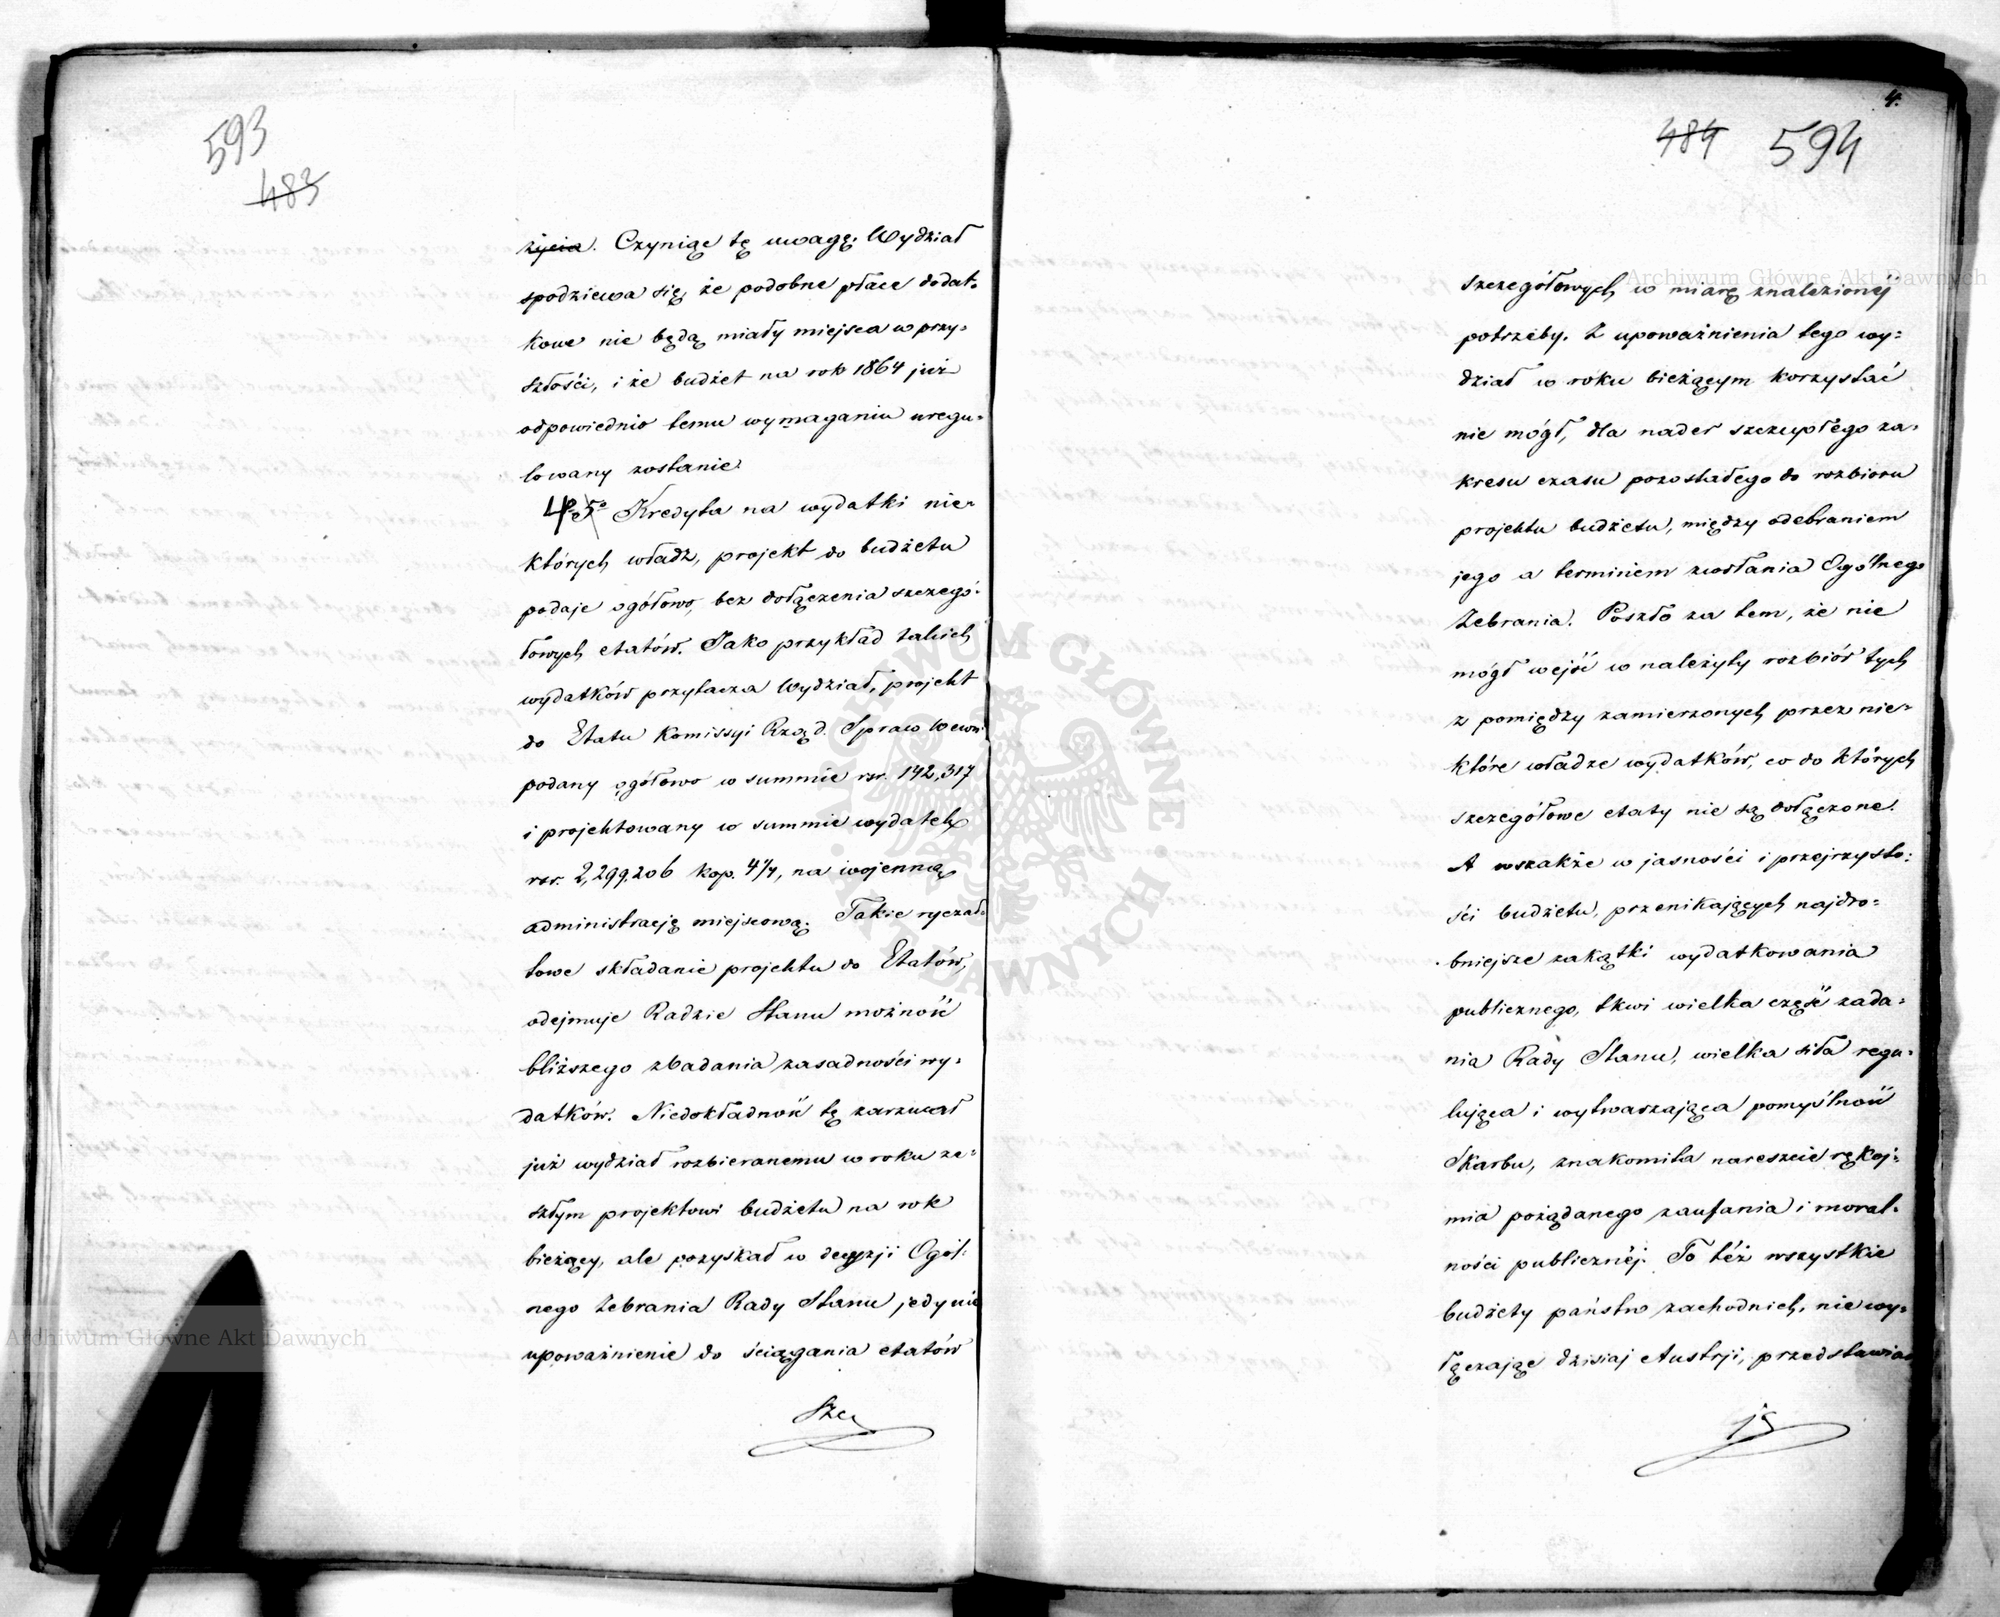 593
483
życia. Czyniąc tę uwagę, Wydział
spodziewa się, że podobne płace dodat-
kowe nie będą miały miejsca w przy-
szłości, i że budżet na rok 1864 już
odpowiednio temu wymaganiu uregu-
lowany zostanie.
4° Kredyta na wydatki nie-
których władz, projekt do budżetu
podaje ogółowo, bez dołączenia szczegó-
łowych etatów. Jako przykład takich
wydatków przytacza Wydział, projekt
do Etatu Komissyi Rząd. Spraw Wewn:
podany ogółowo w summie rsr. 142,317
i projektowany w summie wydatek
rsr. 2,299,206 kop. 4 1/4, na wojenną
administracją miejscową. Takie ryczał-
towe składanie projektu do Etatów,
odejmuje Radzie Stanu możność
bliższego zbadania zasadności wy-
datków. Niedokładność tę zarzucał
już wydział rozbieranemu w roku ze-
szłym projektowi budżetu na rok
bieżący, ale pozyskał w decyzji Ogól-
nego Zebrania Rady Stanu jedynie
upoważnienie do ściągania etatów
4.
484 594
szczegółowych w miarę znalezionéj
potrzeby. Z upoważnienia tego wy-
dział w roku bieżącym korzystać
nie mógł, dla nader szczupłego za-
kresu czasu pozostałego do rozbioru
projektu budżetu, między odebraniem
jego a terminem zwołania Ogólnego
Zebrania. Poszło za tem, że nie
mógł wejść w należyty rozbiór tych
z pomiędzy zamierzonych przez nie-
które władze wydatków, co do których
szczegółowe etaty nie są dołączone.
A wszakże w jasności i przejrzysto-
ści budżetu, przenikających najdro-
bniejsze zakątki wydatkowania
publicznego, tkwi wielka część zada-
nia Rady Stanu, wielka siła regu-
lująca i wytwarzająca pomyślność
Skarbu, znakomita nareszcie rękoj-
mia pożądanego zaufania i moral-
ności publicznéj. To téż wszystkie
budżety państw zachodnich, nie wy-
łączając dzisiaj Austrji, przedstawiają
Archiwum Główne Akt Dawnych
ARCHIWUM GŁÓWNE AKT DAWNYCH
Archiwum Główne Akt Dawnych